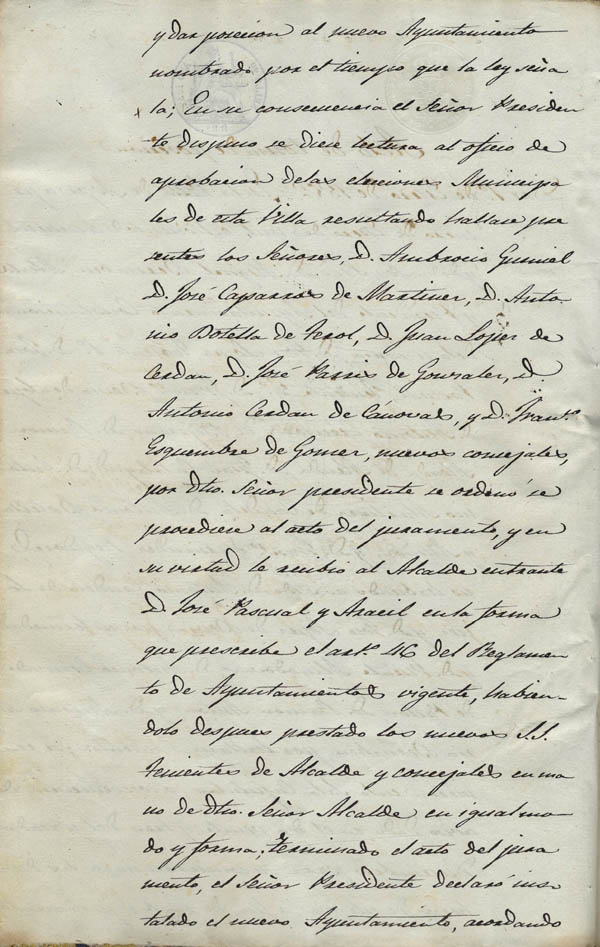 y dar posecion al nuevo Ayuntamiento
nombrado por el tiempo que la ley seña
la; En su consecuencia el Señor Presiden
te dispuso se diese lectura al oficio de
aprobacion de las elecciones Municipa
les de esta Villa resultando hallarse pre
sentes los Señores, D. Ambrocio Gumiel
D. José Caparros de Martinez, D. Anto
nio Botella de Ferol, D. Juan Lopez de
Cerdan, D. José Parris de Gonzalez, D.
Antonio Cerdan de Cánovas, y D. Franco.
Esquembre de Gomez, nuevos concejales,
por dho. Señor presidente se ordenó se
procediese al acto del juramento, y en
su virtud le recibio al Alcalde entrante
D. José Pascual y Aracil en la forma
que prescribe el arto. 46 del Reglamen
to de Ayuntamientos vigente, habien-
dolo despues prestado los nuevos S.S.
Tenientes de Alcalde y concejales en ma
no de dho. Señor Alcalde en igual mo-
do y forma; Terminado el acto del jura
mento, el Señor Presidente declaró ins-
talado el nuevo Ayuntamiento, acordando